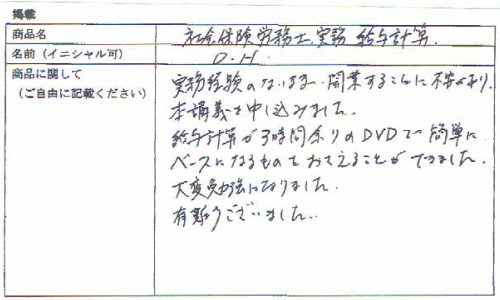 掲載
商品名
社会保険労務士実務 給与計算.
名前（イニシャル可）
O.H.
商品に関して
（ご自由に記載ください）
実務経験のないまま、開業することに不安があり、
本講義を申し込みました。
給与計算が3時間余りのDVDで簡単に
ベースになるものをおさえることができました。
大変勉強になりました。
有難うございました。